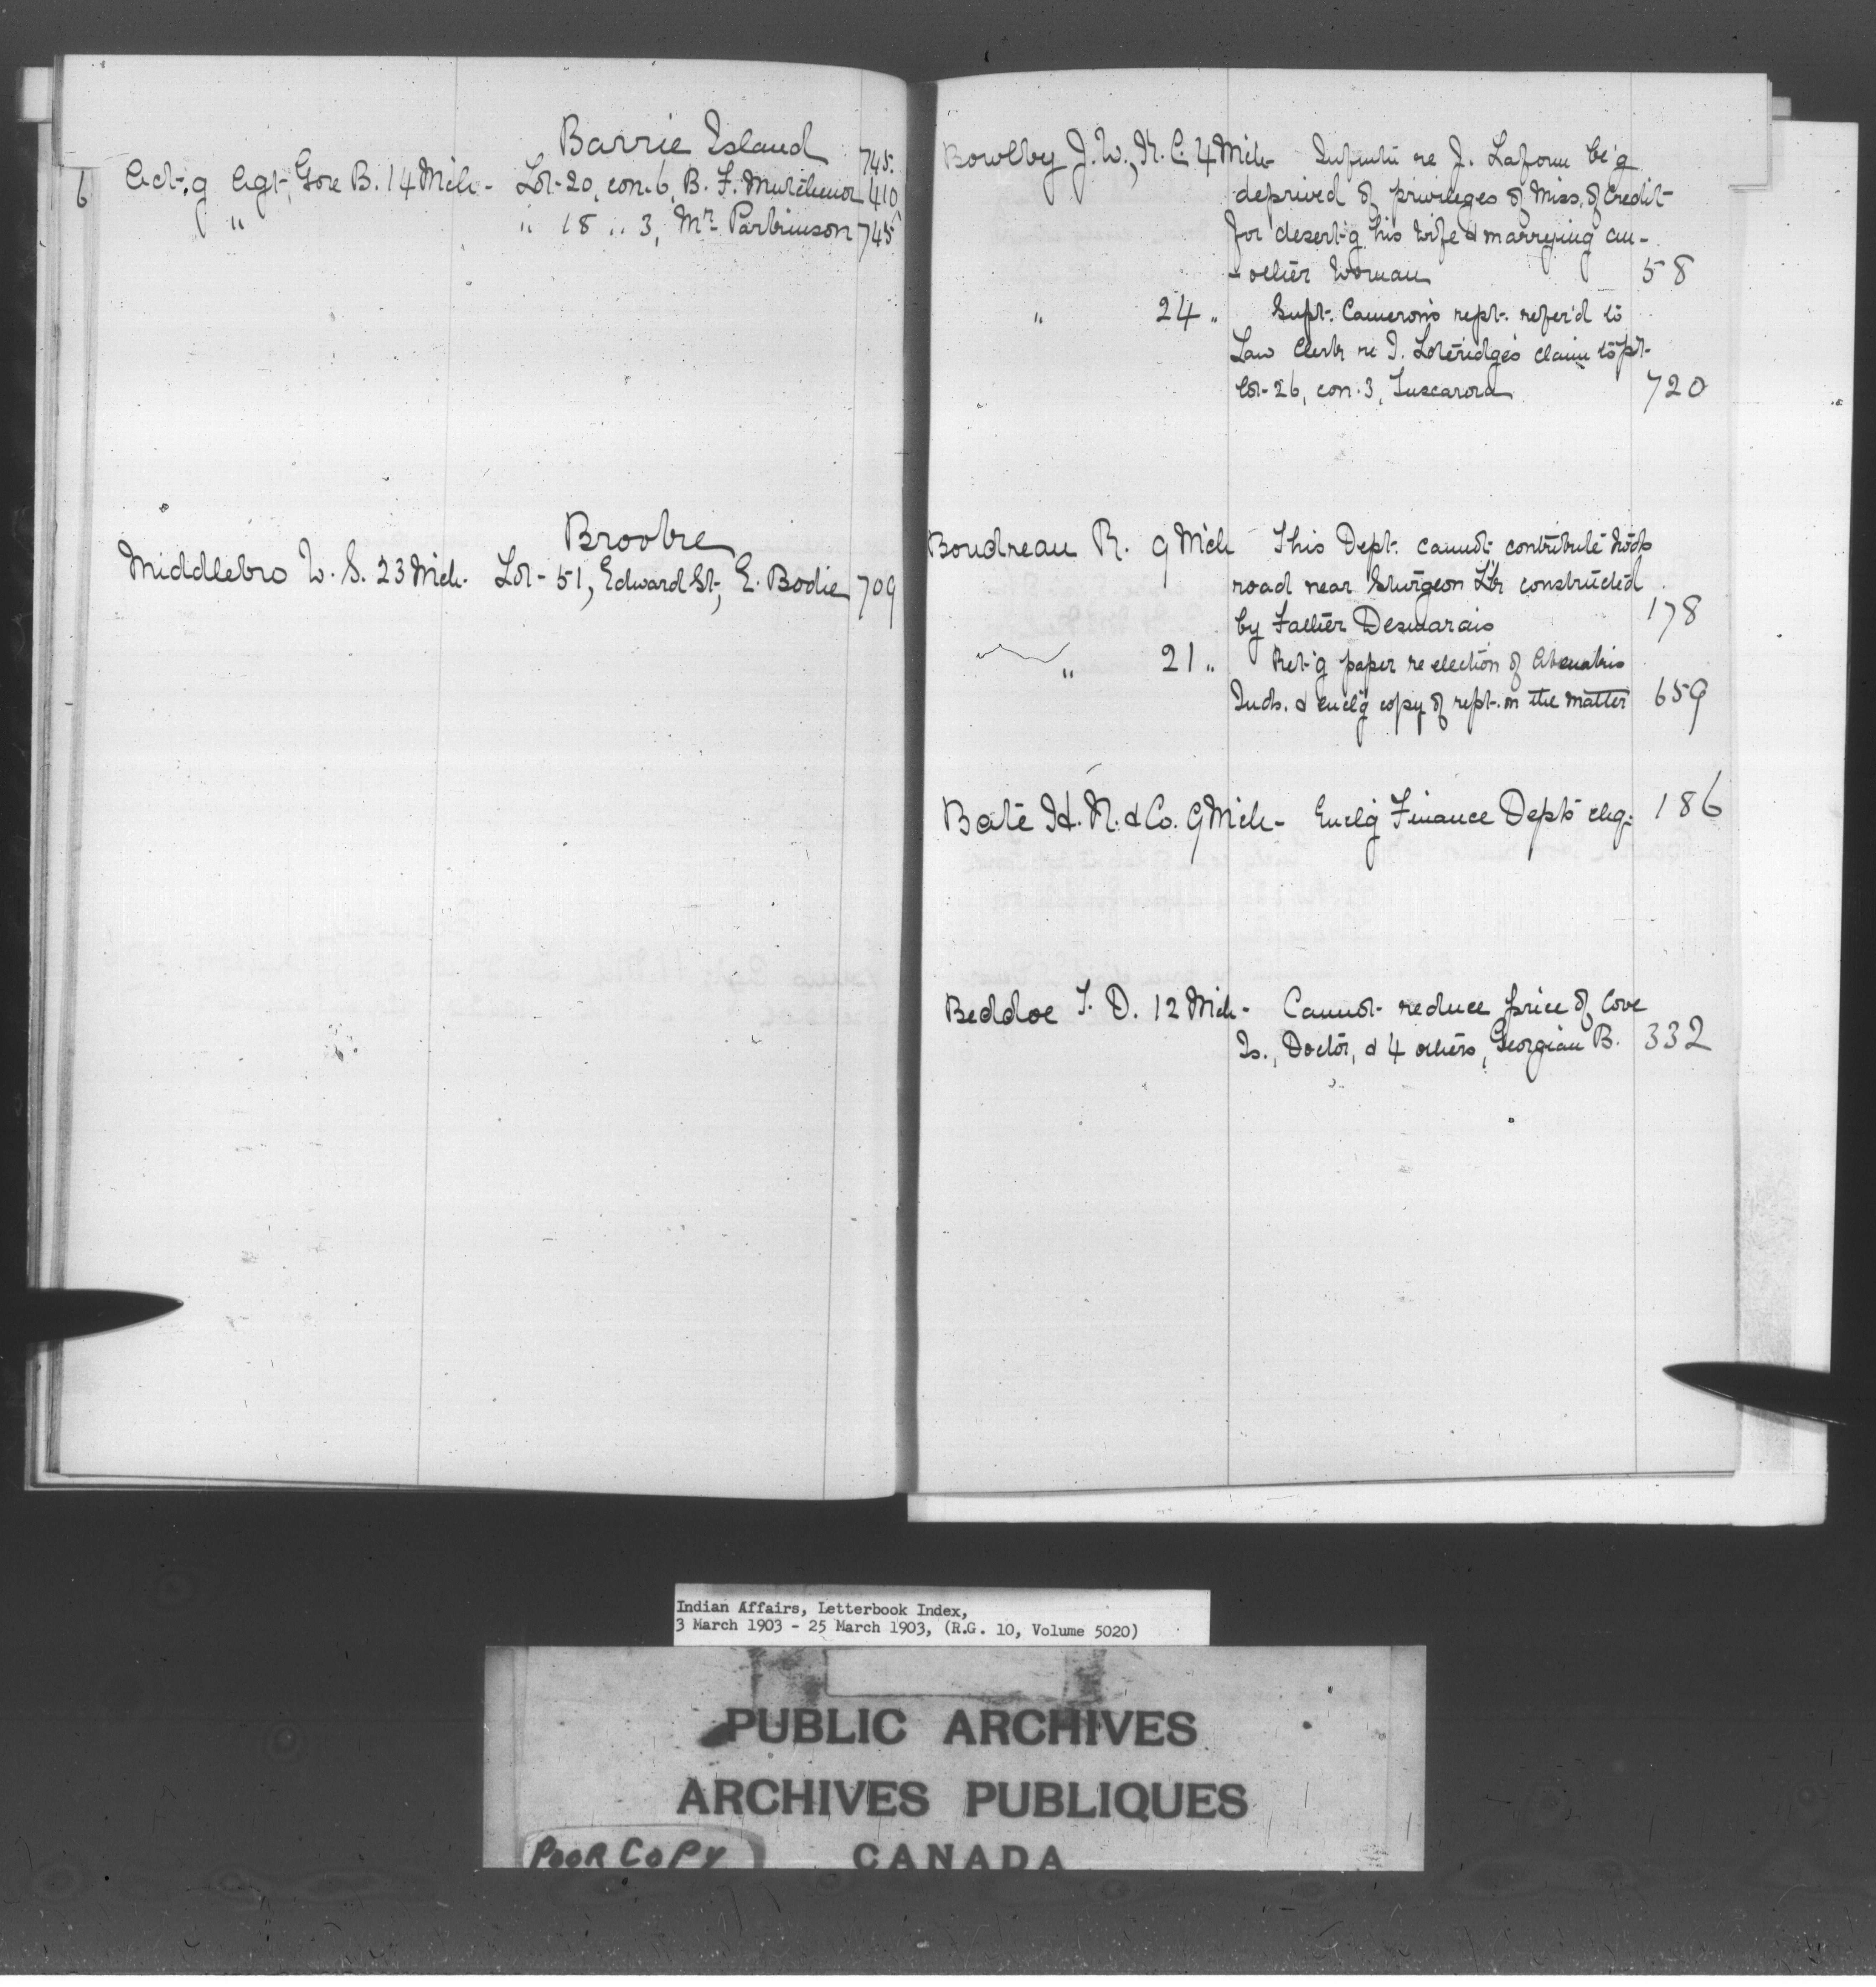 Barrie Island
745.
6 Act'g Agt, Gore B. 14 Mch - Lot-20, con. 6, B. F. 410
" " 18 " 3, Mr Parkinson 745
Brooke
Middlebro W. S. 23 Mch. Lot-51, Edward St, E. Bodie 709
Bowlby J. W., K. C. 4 Mch - re J. Laform be'g
deprived of privileges of Miss. of Credit
for desert'g his wife & marrying an-
-other woman 58
" 24 " Supt. Cameron's rept. refer'd to
Law Clerk re J. Loteridge's claim to pt-
lot-26, con. 3, Tuscarora 720
Boudreau R. 9 Mch This Dept. cannot contribute
road near Sturgeon constructed
by Father Desmarais 178
" 21 " Ret'g paper re election of
Inds. & encl'g copy of rept. on the matter 659
Bate H. N. & Co. 9 Mch - Encl'g Finance Dept's chq. 186
Beddoe T. D. 12 Mch - Cannot reduce price of Cove
Is., Doctor, & 4 others, Georgian B. 332
Indian Affairs, Letterbook Index,
3 March 1903 - 25 March 1903, (R.G. 10, Volume 5020)
PUBLIC ARCHIVES
ARCHIVES PUBLIQUES
POOR COPY CANADA